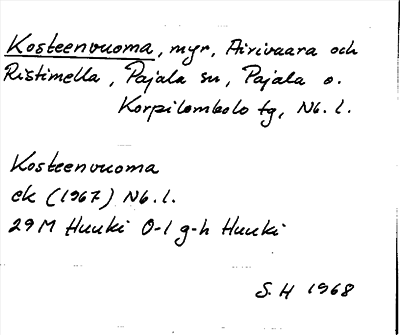 Kosteenvuoma, myr, Airivaara och
Ristimella, Pajala sn, Pajala o.
Korpilombolo tg, Nb. l.
Kosteenvuoma
ek (1967) Nb. l.
29M Huuki 0-1 g-h Huuki
S.H 1968